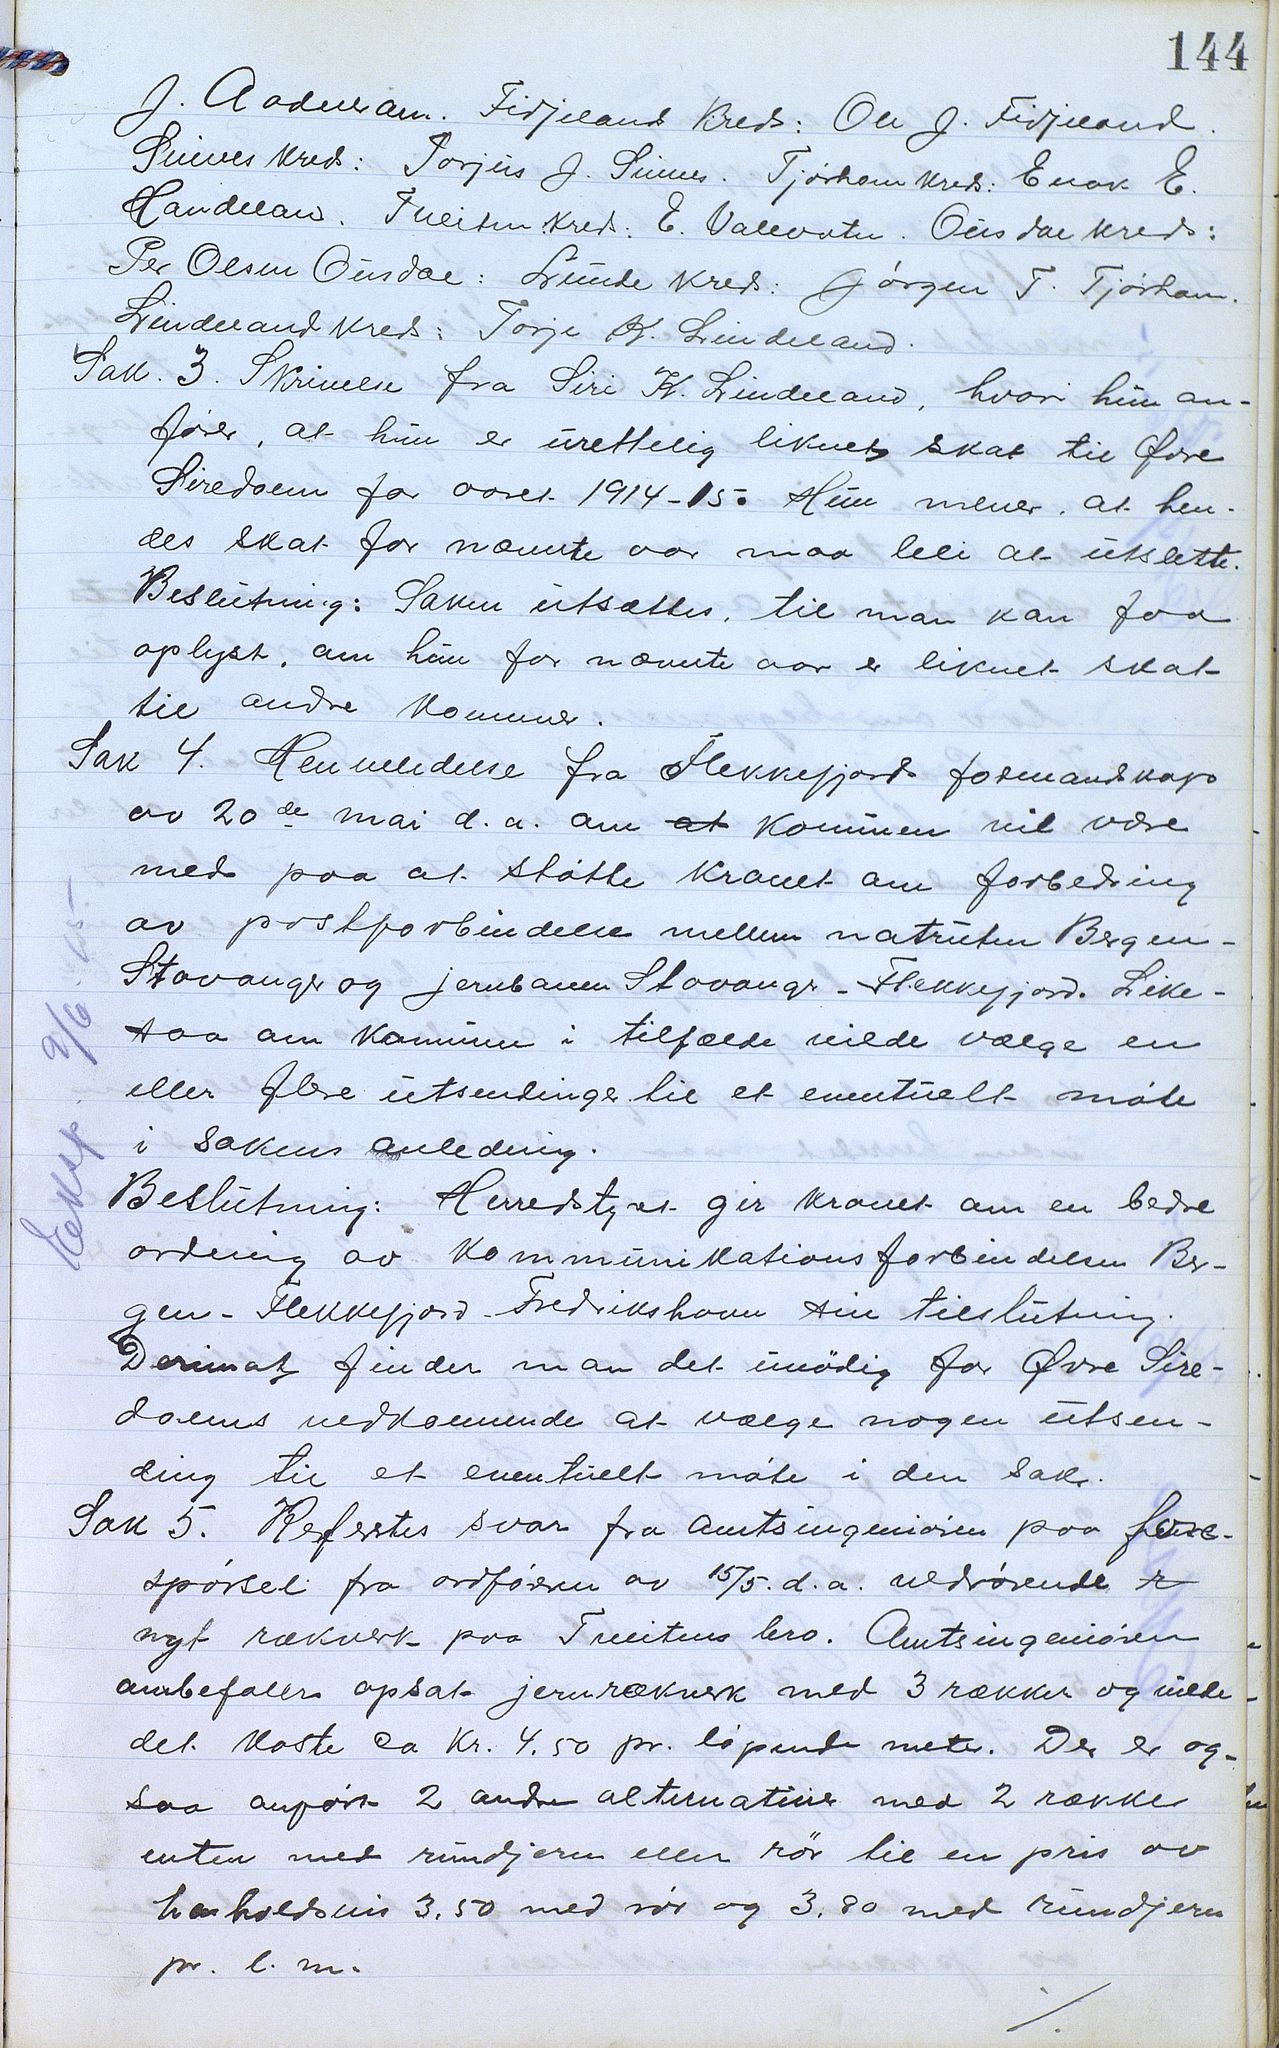 144
J. Aadneram. Fidjeland kreds: Ole J. Fidjeland.
Sinnes kreds: Torjus J. Sinnes. Tjørhom kreds: Enok E.
Haudeland. Tveiten kreds: E. Valevatn. Ousdal kreds:
Per Olsen Ousdal: Lunde kreds: Jørgen T. Tjørhom.
Lindeland kreds: Torje K. Lindeland.
Sak. 3. Skrivelse fra Siri K. Lindeland, hvori hun an-
fører, at hun er urettelig liknet skat til Øvre
Siredalen for aaret 1914-15. Hun mener, at hen-
des skat for nævnte aar maa bli at utslette.
Beslutning: Saken utsættes, til man kan faa
oplyst, om hun for nævnte aar er liknet skat
til andre kommuner.
Sak 4. Henvendelse fra Flekkefjords formandskap
av 20de mai d.a. om at kommunen vil være
med paa at støtte kravet om forbedring
av postforbindelse mellem natruten Bergen-
Stavanger og jernbanen Stavanger-Flekkefjord. Like-
saa om kommunen i tilfælde vilde vælge en
eller flere utsendinger til et eventuelt møte
i sakens anledning.
Beslutning: Herredstyret gir kravet om en bedre
ordning av kommunikationsforbindelsen Ber-
gen-Flekkefjord-Fredrikshavn sin tilslutning.
Derimot finder man det unødig for Øvre Sire-
dalens vedkommende at vælge nogen utsen-
ding til et eventuelt møte i den sak.
Eksp. 9/6 15
Sak 5. Refertes svar fra amtsingeniøren paa fore-
spørsel fra ordføreren av 15/5. d.a. vedrørende r
nyt rækverk paa Tveitens bro. Amtsingeniøren
anbefaler opsat jernrækverk med 3 rækker og vilde
det koste ca kr. 4.50 pr. løpende meter. Der er og-
saa anført 2 andre alternativer med 2 rækker
enten med rundjern eller rør til en pris av
henholdsvis 3,50 med rør og 3,80 med rundjern
pr. l. m.